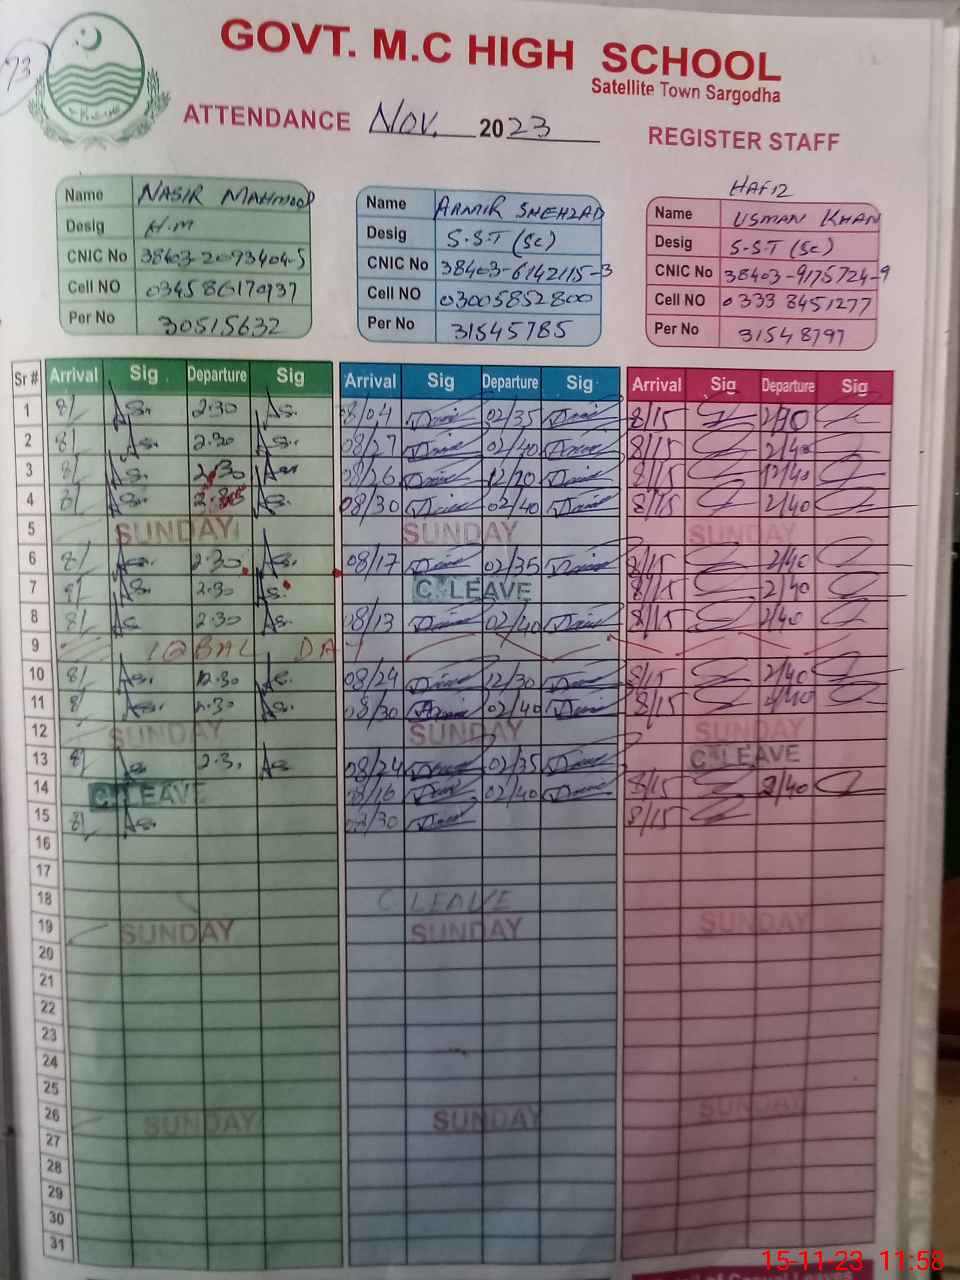 73
GOVT. M.C HIGH SCHOOL
Satellite Town Sargodha
ATTENDANCE Nov. 2023 REGISTER STAFF
Name NASIR MAHMOOD
Desig H.M
CNIC No 38403-2073404-5
Cell NO 034586170937
Per No 30515632
Name AAMIR SHEHZAD
Desig S.S.T (Sc)
CNIC No 38403-6142115-3
Cell NO 03005852800
Per No 31545785
HAFIZ
Name USMAN KHAN
Desig S.S.T (Sc)
CNIC No 38403-9175724-9
Cell NO 0333 8451277
Per No 31548797
Sr # Arrival Sig Departure Sig Arrival Sig Departure Sig Arrival Sig Departure Sig
1 8/ 2.30 08/04 02/35 8/15
2 8/ 2.30 08/27 02/40 8/15 2/40
3 8/ 2.30 08/26 8/15 12/40
4 8/ 08/30 02/40 8/15 2/40
5 SUNDAY SUNDAY SUNDAY
6 8/ 2.30 08/17 02/35 8/15 2/40
7 8/ 2.30 C. LEAVE 8/15 2/40
8 8/ 2.30 08/13 02/40 8/15 2/40
9 IQBAL DAY
10 8/ 12.30 08/24 12/30 8/15 2/40
11 8/ 2.30 08/30 02/40 8/15 2/40
12 SUNDAY SUNDAY SUNDAY
13 8/ 2.3 08/24 02/35 C. LEAVE
14 C. LEAVE 08/16 02/40 8/15 2/40
15 8/ 08/30 8/15
16
17
18 C. LEAVE
19 SUNDAY SUNDAY SUNDAY
20
21
22
23
24
25
26 SUNDAY SUNDAY SUNDAY
27
28
29
30
31
15-11-23 11:58